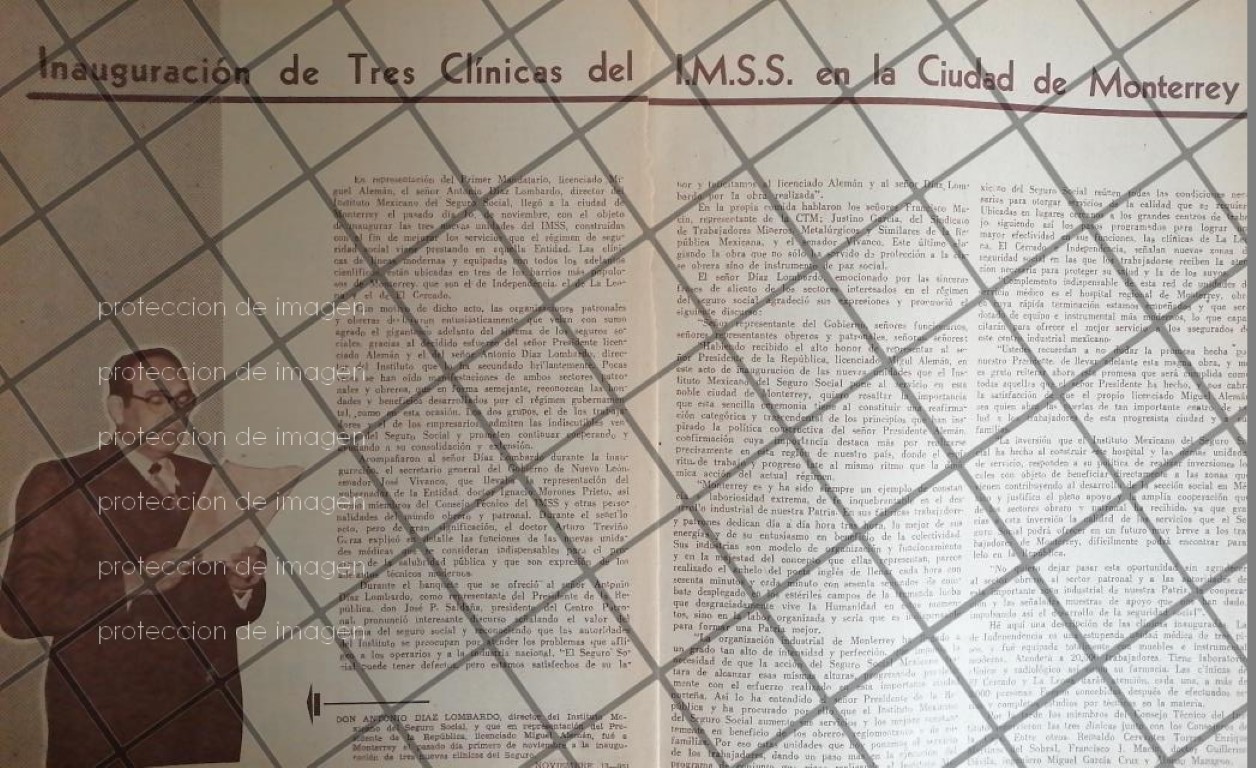 Inauguración de Tres Clínicas del I.M.S.S. en la Ciudad de Monterrey
proteccion de imagen
proteccion de imagen
proteccion de imagen
proteccion de imagen
proteccion de imagen
proteccion de imagen
En representación del Primer Mandatario, licenciado Mi-
guel Alemán, el señor Antonio Díaz Lombardo, director del
Instituto Mexicano del Seguro Social, llegó a la ciudad de
Monterrey el pasado día 1o. de noviembre, con el objeto
de inaugurar las tres nuevas unidades del IMSS, construidas
con el fin de mejorar los servicios que el régimen de segu-
ridad social viene prestando en aquella Entidad. Las clíni-
cas de líneas modernas y equipadas con todos los adelantos
científicos están ubicadas en tres de los barrios más populo-
sos de Monterrey, que son el de Independencia, el de La Leo-
el de El Cercado.
dicho acto, las organizaciones patronales
y obreras
entusiásticamente
agrado el gigantesco adelanto del sistema de los seguros so-
ciales, gracias al decidido esfuerzo del señor Presidente licen-
ciado Alemán y el del señor Antonio Díaz Lombardo, direc-
tor del Instituto que lo ha secundado brillantemente. Pocas
veces se han oído manifestaciones de ambos sectores, patro-
nales y obreros, que en forma semejante, reconozcan las bon-
dades y beneficios desarrollados por el régimen gubernamen-
tal, como en esta ocasión. Los dos grupos, el de los trabaja-
dores y el de los empresarios, admiten las indiscutibles ven-
tajas del Seguro Social y prometen continuar cooperando y
ayudando a su consolidación y extensión.
Acompañaron al señor Díaz Lombardo durante la inau-
guración, el secretario general del Gobierno de Nuevo León,
senador José Vivanco, que llevaba la representación del
gobernador de la Entidad, doctor Ignacio Morones Prieto, así
como miembros del Consejo Técnico del IMSS y otras perso-
nalidades del mundo obrero y patronal. Durante el sencillo
acto, pero de gran significación, el doctor Arturo Treviño
Garza explicó en detalle las funciones de las nuevas unida-
des médicas que se consideran indispensables para el pro-
greso de la salubridad pública y que son expresión de los
adelantos técnicos modernos.
Durante el banquete que se ofreció al señor Antonio
Díaz Lombardo, como representante del Presidente de la Re-
pública, don José P. Saldaña, presidente del Centro Patro-
nal, pronunció interesante discurso señalando el valor so-
cial del seguro social y reconociendo que las autoridades
del Instituto se preocupan por todos los problemas que afli-
gen a los operarios y a la industria nacional. "El Seguro So-
cial puede tener defectos, pero estamos satisfechos de su la-
DON ANTONIO DIAZ LOMBARDO, director del Instituto Me-
xicano del Seguro Social, y que en representación del Pre-
sidente de la República, licenciado Miguel Alemán, fué a
Monterrey el pasado día primero de noviembre a la inaugu-
ración de tres nuevas clínicas del Seguro
NOVIEMBRE 17—951
bor y felicitamos al licenciado Alemán y al señor Díaz Lom-
bardo por la obra realizada".
En la propia comida hablaron los señores Francisco Ma-
cín, representante de la CTM; Justino García, del Sindicato
de Trabajadores Mineros, Metalúrgicos y Similares de la Re-
pública Mexicana, y el senador Vivanco. Este último elo-
giando la obra que no sólo ha servido de protección a la cla-
se obrera sino de instrumento de paz social.
El señor Díaz Lombardo, emocionado por las sinceras
frases de aliento de los sectores interesados en el régimen
del seguro social agradeció sus expresiones y pronunció el
siguiente discurso:
representante del Gobierno, señores funcionarios,
señores representantes obreros y patronales, señoras, señores:
"Habiendo recibido el alto honor de representar al se-
ñor Presidente de la República, licenciado Miguel Alemán, en
este acto de inauguración de las nuevas unidades que el Ins-
tituto Mexicano del Seguro Social pone al servicio en esta
noble ciudad de Monterrey, quiero resaltar la importancia
que esta sencilla ceremonia tiene al constituir la reafirma-
ción categórica y trascendente de los principios que han ins-
pirado la política constructiva del señor Presidente Alemán,
confirmación cuya importancia destaca más por realizarse
precisamente en esta región de nuestro país, donde el espí-
ritu de trabajo y progreso tiene al mismo ritmo que la diná-
mica acción del actual régimen.
"Monterrey es y ha sido siempre un ejemplo de constan-
cia, de laboriosidad extrema, de fe inquebrantable en el des-
arrollo industrial de nuestra Patria. En sus fábricas, trabajadores
y patrones dedican día a día hora tras hora, lo mejor de sus
energías y de su entusiasmo en beneficio de la colectividad.
Sus industrias son modelo de organización y funcionamiento
y en la majestad del concierto que ellas representan, parece
realizado el anhelo del poeta inglés de llenar cada hora con
sesenta minutos y cada minuto con sesenta segundos de com-
bate desplegado no en estériles campos de la tremenda lucha
que desgraciadamente vive la Humanidad en estos momen-
tos, sino en la labor organizada y seria que es indispensable
para formar una Patria mejor.
"La organización industrial de Monterrey ha llegado a
un grado tan alto de intensidad y perfección, que impone la
necesidad de que la acción del Seguro Social Mexicano tra-
tara de alcanzar esas mismas alturas, progresando paralela-
mente con el esfuerzo realizado en esta importante ciudad
norteña. Así lo ha entendido el señor Presidente de la Re-
pública y ha procurado por ello que el Instituto Mexicano
del Seguro Social aumente sus servicios y los mejore constan-
temente en beneficio de los obreros regiomontanos y de sus
familias. Por eso estas unidades que hoy ponemos al servicio
de los trabajadores, dando un paso más en la ejecución del
xicano del Seguro Social reúnen todas las condiciones nece-
sarias para otorgar servicios de la calidad que se requiere.
Ubicadas en lugares cercanos a los grandes centros de traba-
jo, siguiendo así los planes programados para lograr una
mayor efectividad de sus funciones, las clínicas de La Leo-
na, El Cercado e Independencia, señalan nuevas zonas de
seguridad social en las que los trabajadores reciben la aten-
ción necesaria para proteger su salud y la de los suyos.
complemento indispensable de esta red de unidades de
servicio médico es el hospital de zona de Monterrey, obra
cuya rápida terminación estamos empeñados y que será
dotada de equipo e instrumental más moderno, lo que capa-
citarán para ofrecer el mejor servicio a los asegurados de
este centro industrial mexicano
"Ustedes recuerdan a no dudar la promesa hecha por
nuestro Presidente, de llevar adelante esta magna obra, y me
es grato reiterar ahora esa promesa que será cumplida como
todas aquellas que el señor Presidente ha hecho, y nos cabrá
la satisfacción de que el propio licenciado Miguel Alemán
sea quien abra las puertas de tan importante centro de sa-
lud a los trabajadores de esta progresista ciudad y a sus
familias.
"La inversión que el Instituto Mexicano del Seguro So-
cial ha hecho al construir el hospital y las nuevas unidades
de servicio, responden a su política de hacer las inversiones
con objeto de beneficiar directamente a las masas que
vienen contribuyendo al desarrollo de la acción social en Mé-
xico y justifica el pleno apoyo y la amplia cooperación que
del sectores obrero y patronal ha recibido, ya que gra-
cias a esta inversión la calidad de los servicios que el Se-
guro Social podrá ofrecer en un futuro muy breve a los tra-
bajadores de Monterrey, difícilmente podrá encontrar para-
lelo en la República.
"No quiero dejar pasar esta oportunidad sin agradecer
al sector obrero, al sector patronal y a las autoridades de
importante zona industrial de nuestra Patria, la coopera-
ción y las señaladas muestras de apoyo que han dado
al desarrollo de la seguridad social".
Hé aquí una descripción de las obras inauguradas: La
de Independencia es una estupenda unidad médica de tres pi-
sos y fué equipada totalmente con muebles e instrumental
moderno. Atenderá a 20,000 trabajadores. Tiene laboratorio
clínico y radiológico así como farmacia. Las clínicas de
El Cercado y La Leona darán atención, cada una, a más de
personas. Fueron construidas después de efectuados se-
rios y completos estudios por técnicos en la materia.
de los miembros del Consejo Técnico del